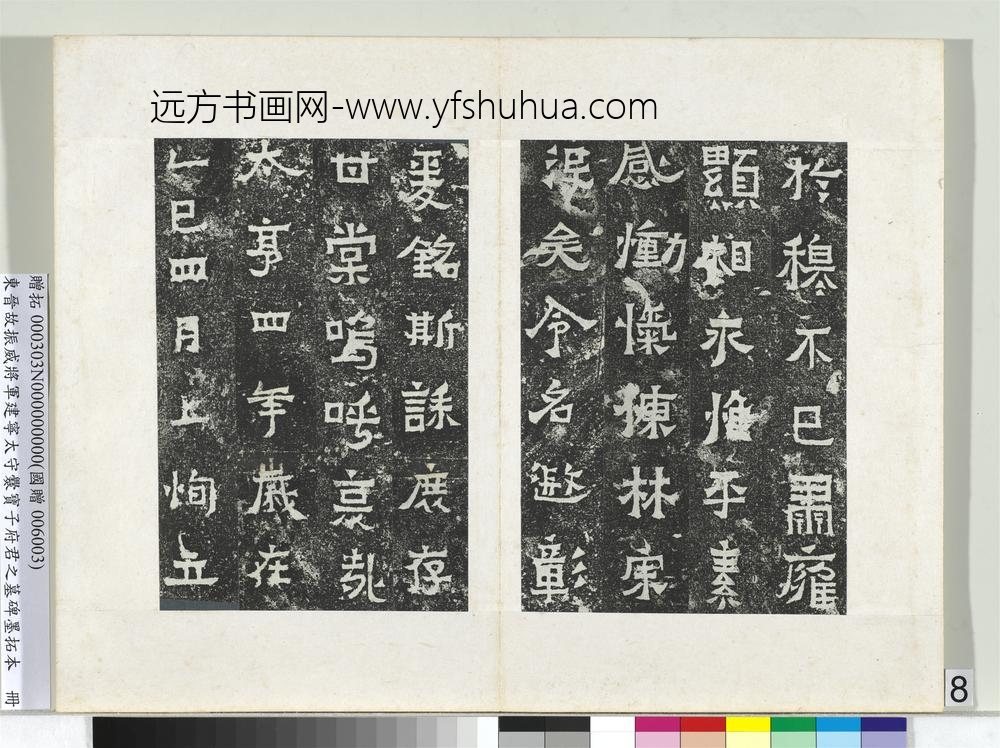 远方书画网-www.yfshuhua.com
於穆不已肅廱
顯相永惟平素
感慟愾慷林宗
泯矣令名遐彰
爰銘斯誄庶存
甘棠嗚呼哀哉
太亨四年歲在
乙巳四月上恂立
贈拓 000303N000000000(國贈 006003)
東晉故振威將軍建寧太守爨寶子府君之墓碑墨拓本 冊
8